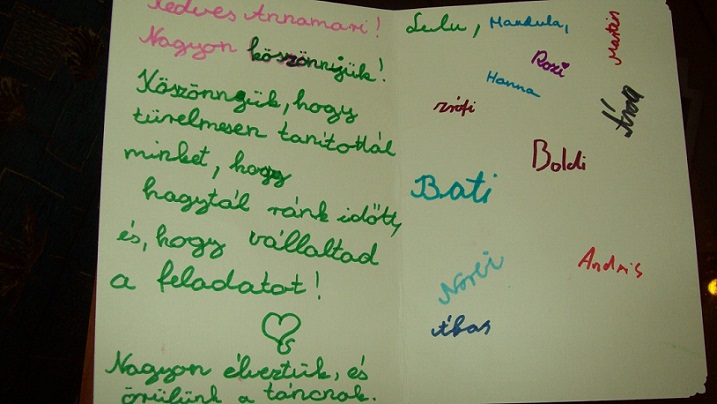 Kedves Annamari!
Nagyon köszönnjük!
Köszönnjük, hogy
türelmesen tanítottál
minket, hogy
hagytál ránk időtt,
és, hogy vállaltad
a feladatot!
Nagyon élveztük, és
örülünk a táncnak.
Lulu, Mandula,
Martin
Rozi
Hanna
Zsófi
Áron
Boldi
Bati
Andris
Noémi
Ákos